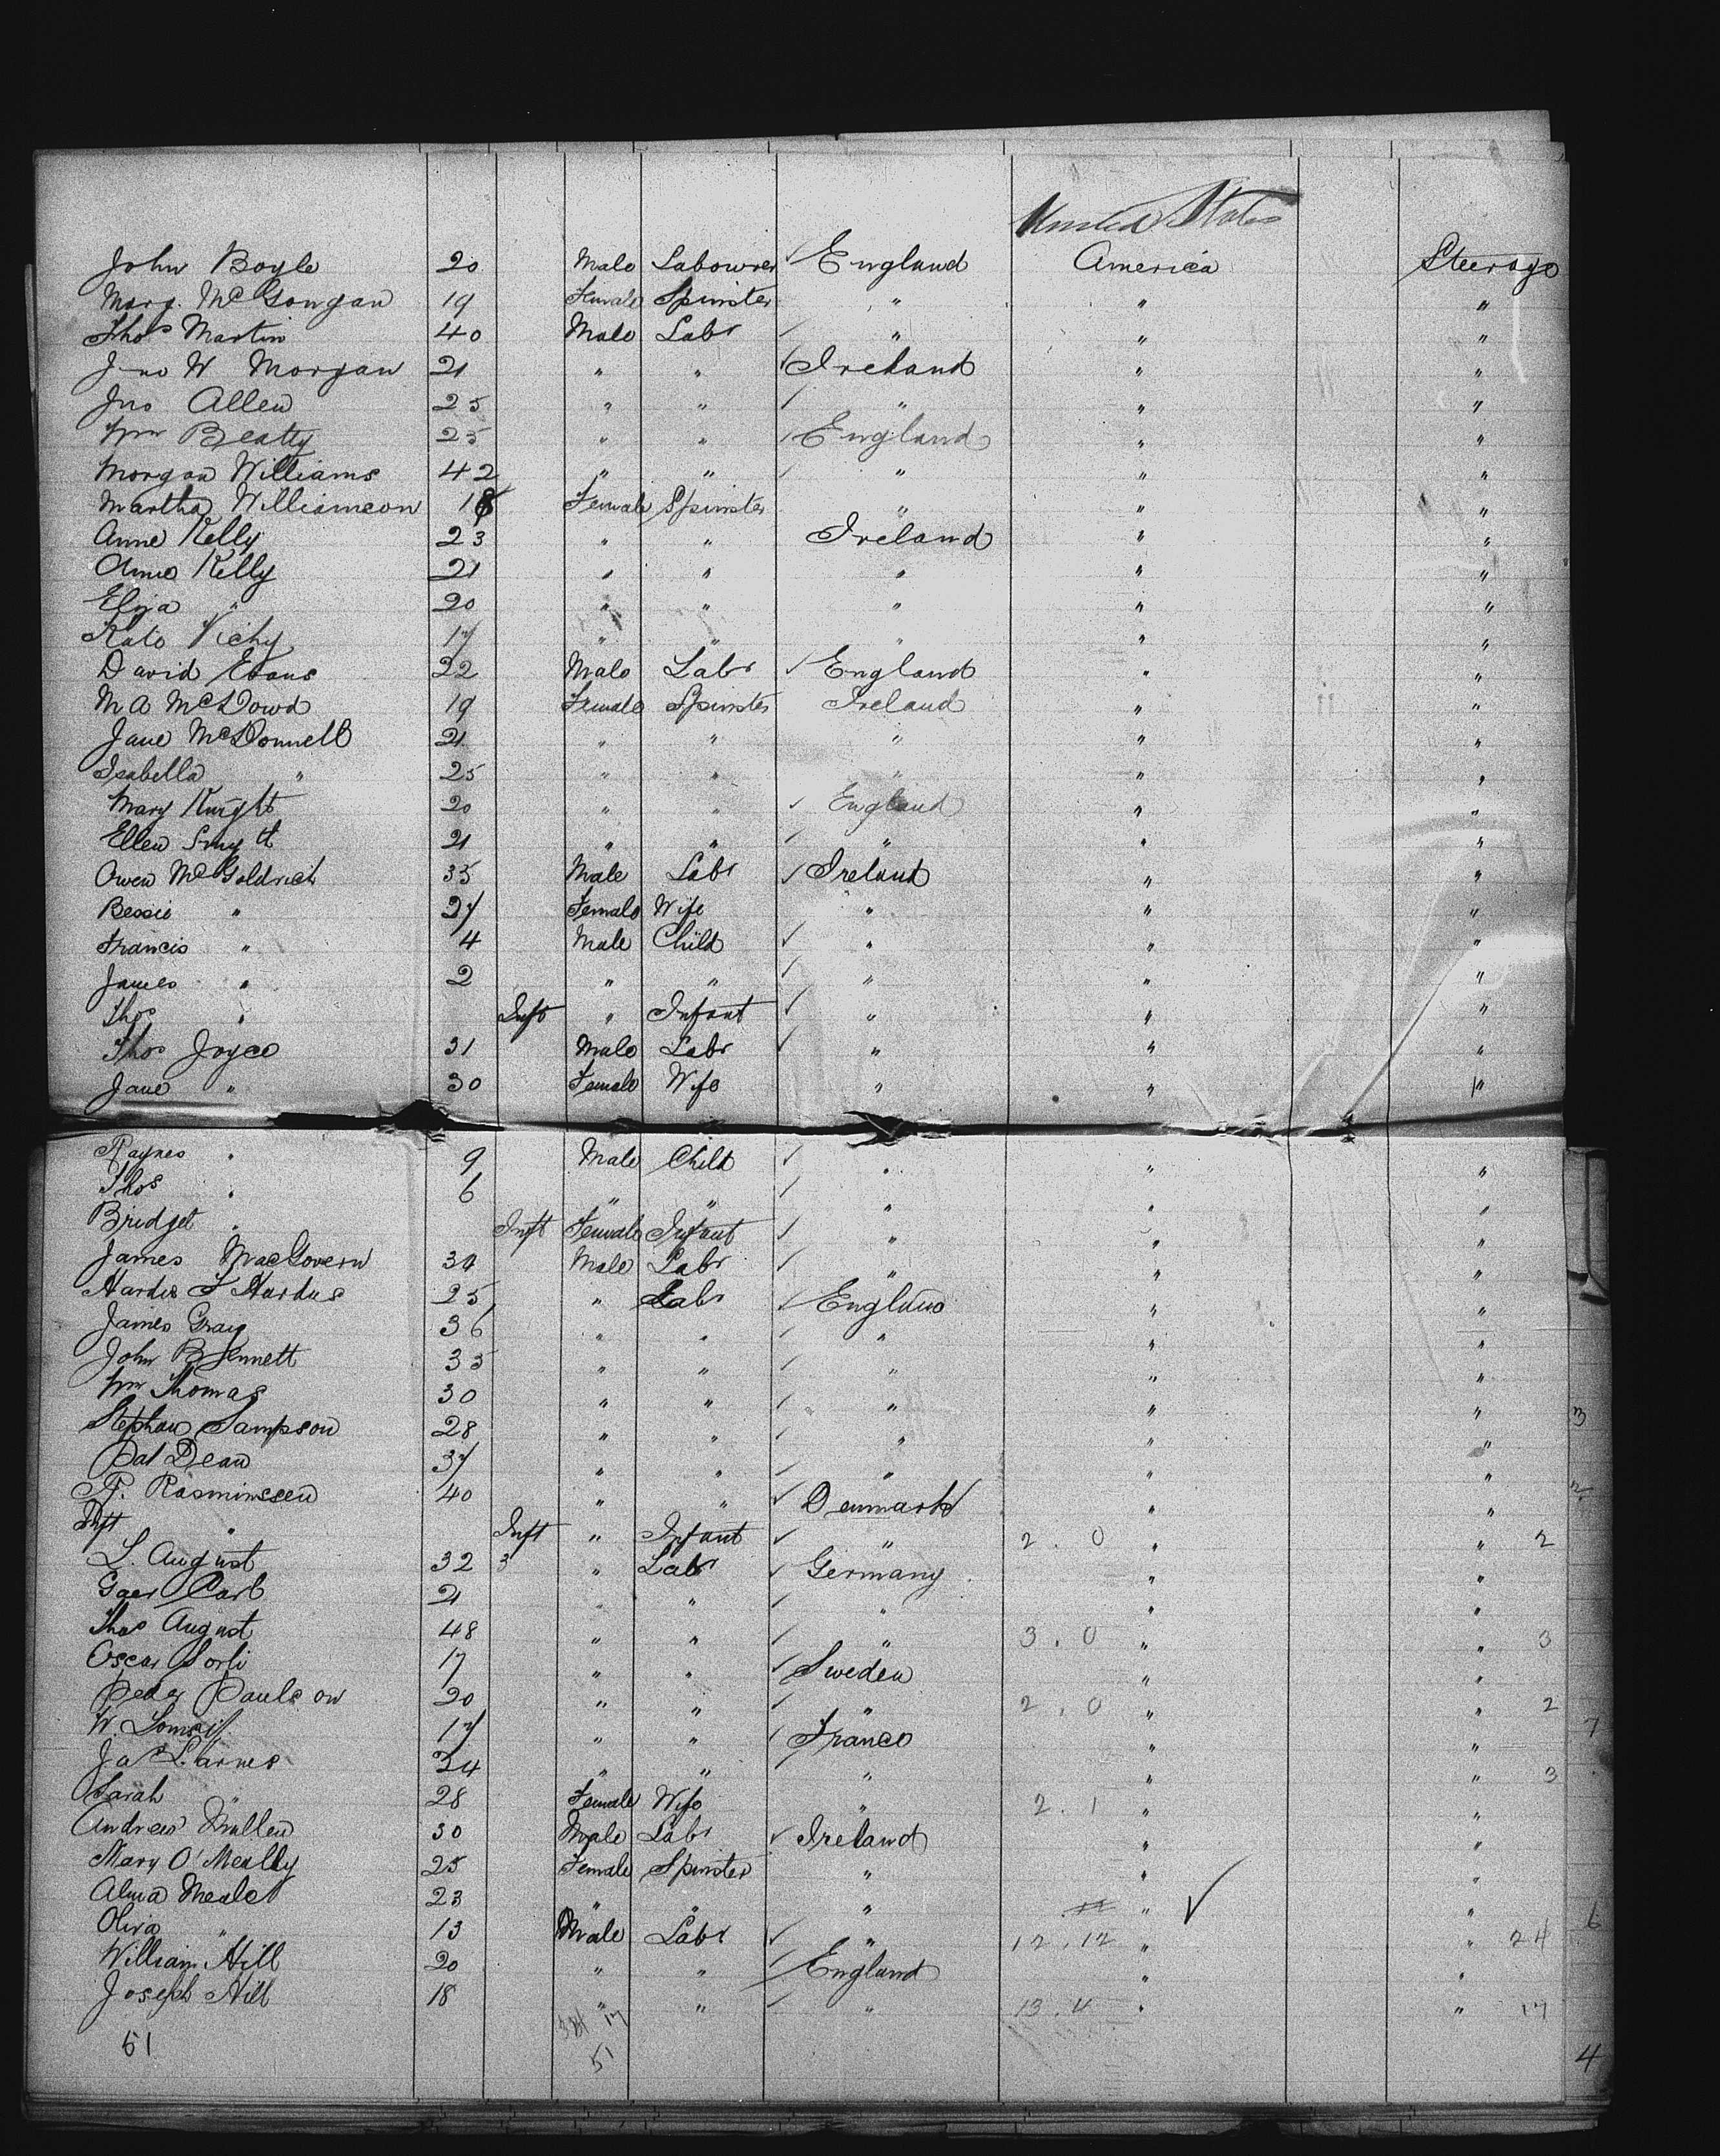 United States
John Boyle 20 Male Labourer ✓ England America Steerage
Marg. McGongan 19 Female Spinster " " "
Thos Martin 40 Male Labr ✓ " " "
Jno W Morgan 21 " " ✓ Ireland " "
Jno Allen 25 " " ✓ " " "
Wm Beatty 25 " " ✓ England " "
Morgan Williams 42 " " ✓ " " "
Martha Williamson 18 Female Spinster " " "
Anne Kelly 23 " " Ireland " "
Annie Kelly 21 " " " " "
Eliza " 20 " " " " "
Kate Vichy 17 " " " " "
David Evans 22 Male Labr ✓ England " "
M A McDowd 19 Female Spinster Ireland " "
Jane McDonnell 21 " " " " "
Isabella " 25 " " " " "
Mary Knight 20 " " ✓ England " "
Ellen Smyth 21 " " ✓ " " "
Owen McGoldrick 35 Male Labr ✓ Ireland " "
Bessie " 27 Female Wife " " "
Francis " 4 Male Child ✓ " " "
James " 2 " " ✓ " " "
Thos " Inft " Infant ✓ " " "
Thos Joyce 31 Male Labr ✓ " " "
Jane " 30 Female Wife " " "
Raynes " 9 Male Child ✓ " " "
Thos " 6 " " ✓ " " "
Bridget " Inft Female Infant ✓ " " "
James MacGovern 34 Male Labr ✓ " " "
Hardus F Hardus 25 " Labr ✓ England " "
James Gray 36 " " ✓ " " "
John Bennett 35 " " ✓ " " "
Wm Thomas 30 " " ✓ " " "
Stephan Sampson 28 " " ✓ " " "
Pat Dean 37 " " ✓ " " "
P. Rasminssen 40 " " ✓ Denmark " "
Inft " Inft " Infant ✓ " 2.0 " " 2
L. August 32 3 " Labr ✓ Germany " "
Carl 21 " " ✓ " " "
Thos August 48 " " ✓ " 3.0 " " 3
Oscar Sorli 17 " " ✓ Sweden " "
Peder Paulson 20 " " ✓ " 2.0 " " 2
W. 17 " " ✓ France " "
Jas Larnes 24 " " ✓ " " " 3
Sarah " 28 Female Wife " 2.1 " "
Andrew Mullen 30 Male Labr ✓ Ireland " "
Mary O'Meally 25 Female Spinster " " "
Alma Meale 23 " " " " ✓ "
Oliva " 13 Male Labr ✓ " 12.12 " " 24
William Hill 20 " " ✓ England " "
Joseph Hill 18 " " ✓ " 13.4 " " 17
51 34 17
51